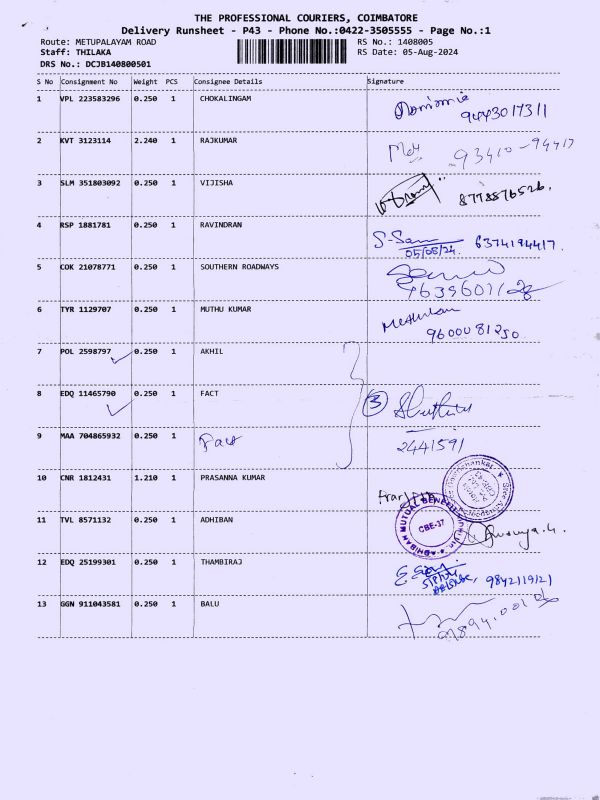 THE PROFESSIONAL COURIERS, COIMBATORE
Delivery Runsheet - P43 - Phone No.:0422-3505555 - Page No.:1
Route: METUPALAYAM ROAD RS No.: 1408005
Staff: THILAKA RS Date: 05-Aug-2024
DRS No.: DCJB140800501
S No Consignment No Weight PCS Consignee Details Signature
1 VPL 223583296 0.250 1 CHOKALINGAM
9443017311
2 KVT 3123114 2.240 1 RAJKUMAR
93410-94417
3 SLM 351803092 0.250 1 VIJISHA
8778876526.
4 RSP 1881781 0.250 1 RAVINDRAN
05/08/24. 6374194417.
5 COK 21078771 0.250 1 SOUTHERN ROADWAYS
6 TYR 1129707 0.250 1 MUTHU KUMAR
9600081250
7 POL 2598797 0.250 1 AKHIL
8 EDQ 11465790 0.250 1 FACT
3
9 MAA 704865932 0.250 1 Fact
2441591
10 CNR 1812431 1.210 1 PRASANNA KUMAR
11 TVL 8571132 0.250 1 ADHIBAN
ADHIBAN MUTUAL BENEFIT
CBE-37
12 EDQ 25199301 0.250 1 THAMBIRAJ
9842119121
13 GGN 911043581 0.250 1 BALU